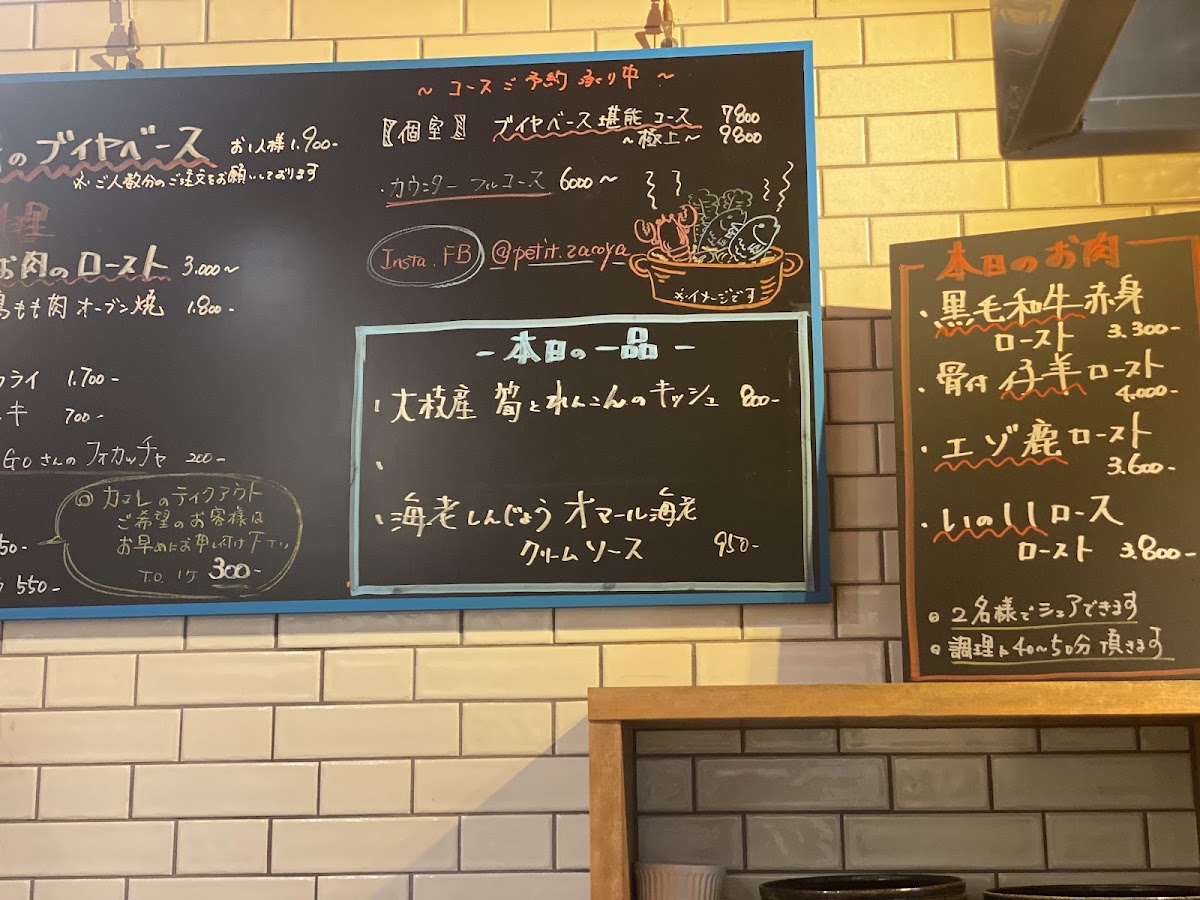 のブイヤベース お1人様 1.900-
※ ご人数分のご注文をお願いしております
料理
お肉のロースト 3.000〜
もも肉 オーブン焼 1.800-
フライ 1.700-
キ 700-
Goさんの フォカッチャ 200-
50-
550-
◎ カマレのテイクアウト
ご希望のお客様は
お早めにお申し付け下さい
T.O. 1ケ 300-
〜 コースご予約 承り中 〜
【個室】 ブイヤベース堪能コース 7800
〜極上〜 9800
・カウンター フルコース 6000〜
Insta. FB @petit.zacoya
※イメージです
- 本日の一品 -
大枝産 筍とれんこんのキッシュ 800-
海老しんじょう オマール海老
クリームソース 950-
本日のお肉
・黒毛和牛赤身
ロースト 3.300-
・骨付 仔羊ロースト
4.000-
・エゾ鹿ロースト
3.600-
・いのししロース
ロースト 3.800-
◎ 2名様でシェアできます
◎ 調理に40〜50分頂きます